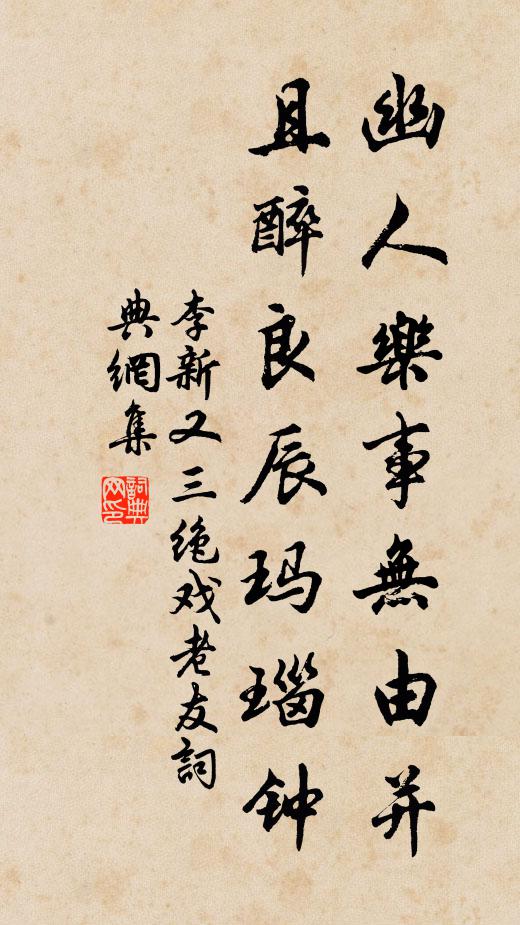 幽人樂事無由并
且醉良辰玛瑙钟
李新又三绝戏老友詞
典網集
詞典网印